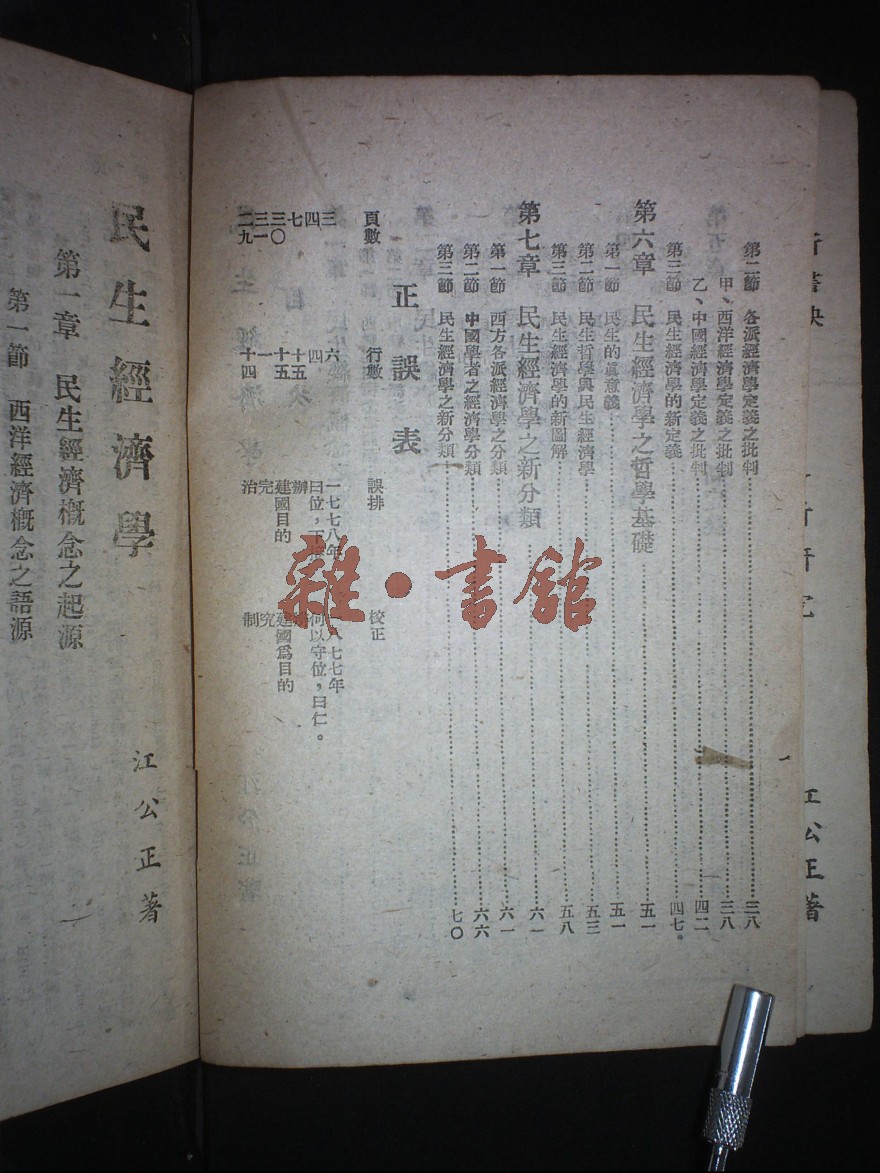 第二節　各派經濟學定義之批判……三八
甲、西洋經濟學定義之批判……三八
乙、中國經濟學定義之批判……四二
第三節　民生經濟學的新定義……四七
第六章　民生經濟學之哲學基礎……五一
第一節　民生的眞意義……五一
第二節　民生哲學與民生經濟學……五三
第三節　民生經濟學的新圖解……五八
第七章　民生經濟學之新分類……六一
第一節　西方各派經濟學之分類……六一
第二節　中國學者之經濟學分類……六六
第三節　民生經濟學之新分類……七〇
正誤表
頁數　行數　誤排　校正
三　六　一七七八年　一八七七年
四　四　曰位，下　何以守位，曰仁。
七　十五　辦
三〇　十五　建國目的　建國爲目的
三一　一　完　究
二九　十四　治　制
民生經濟學
江公正著
第一章　民生經濟概念之起源
第一節　西洋經濟概念之語源
江公正著
雜·書館